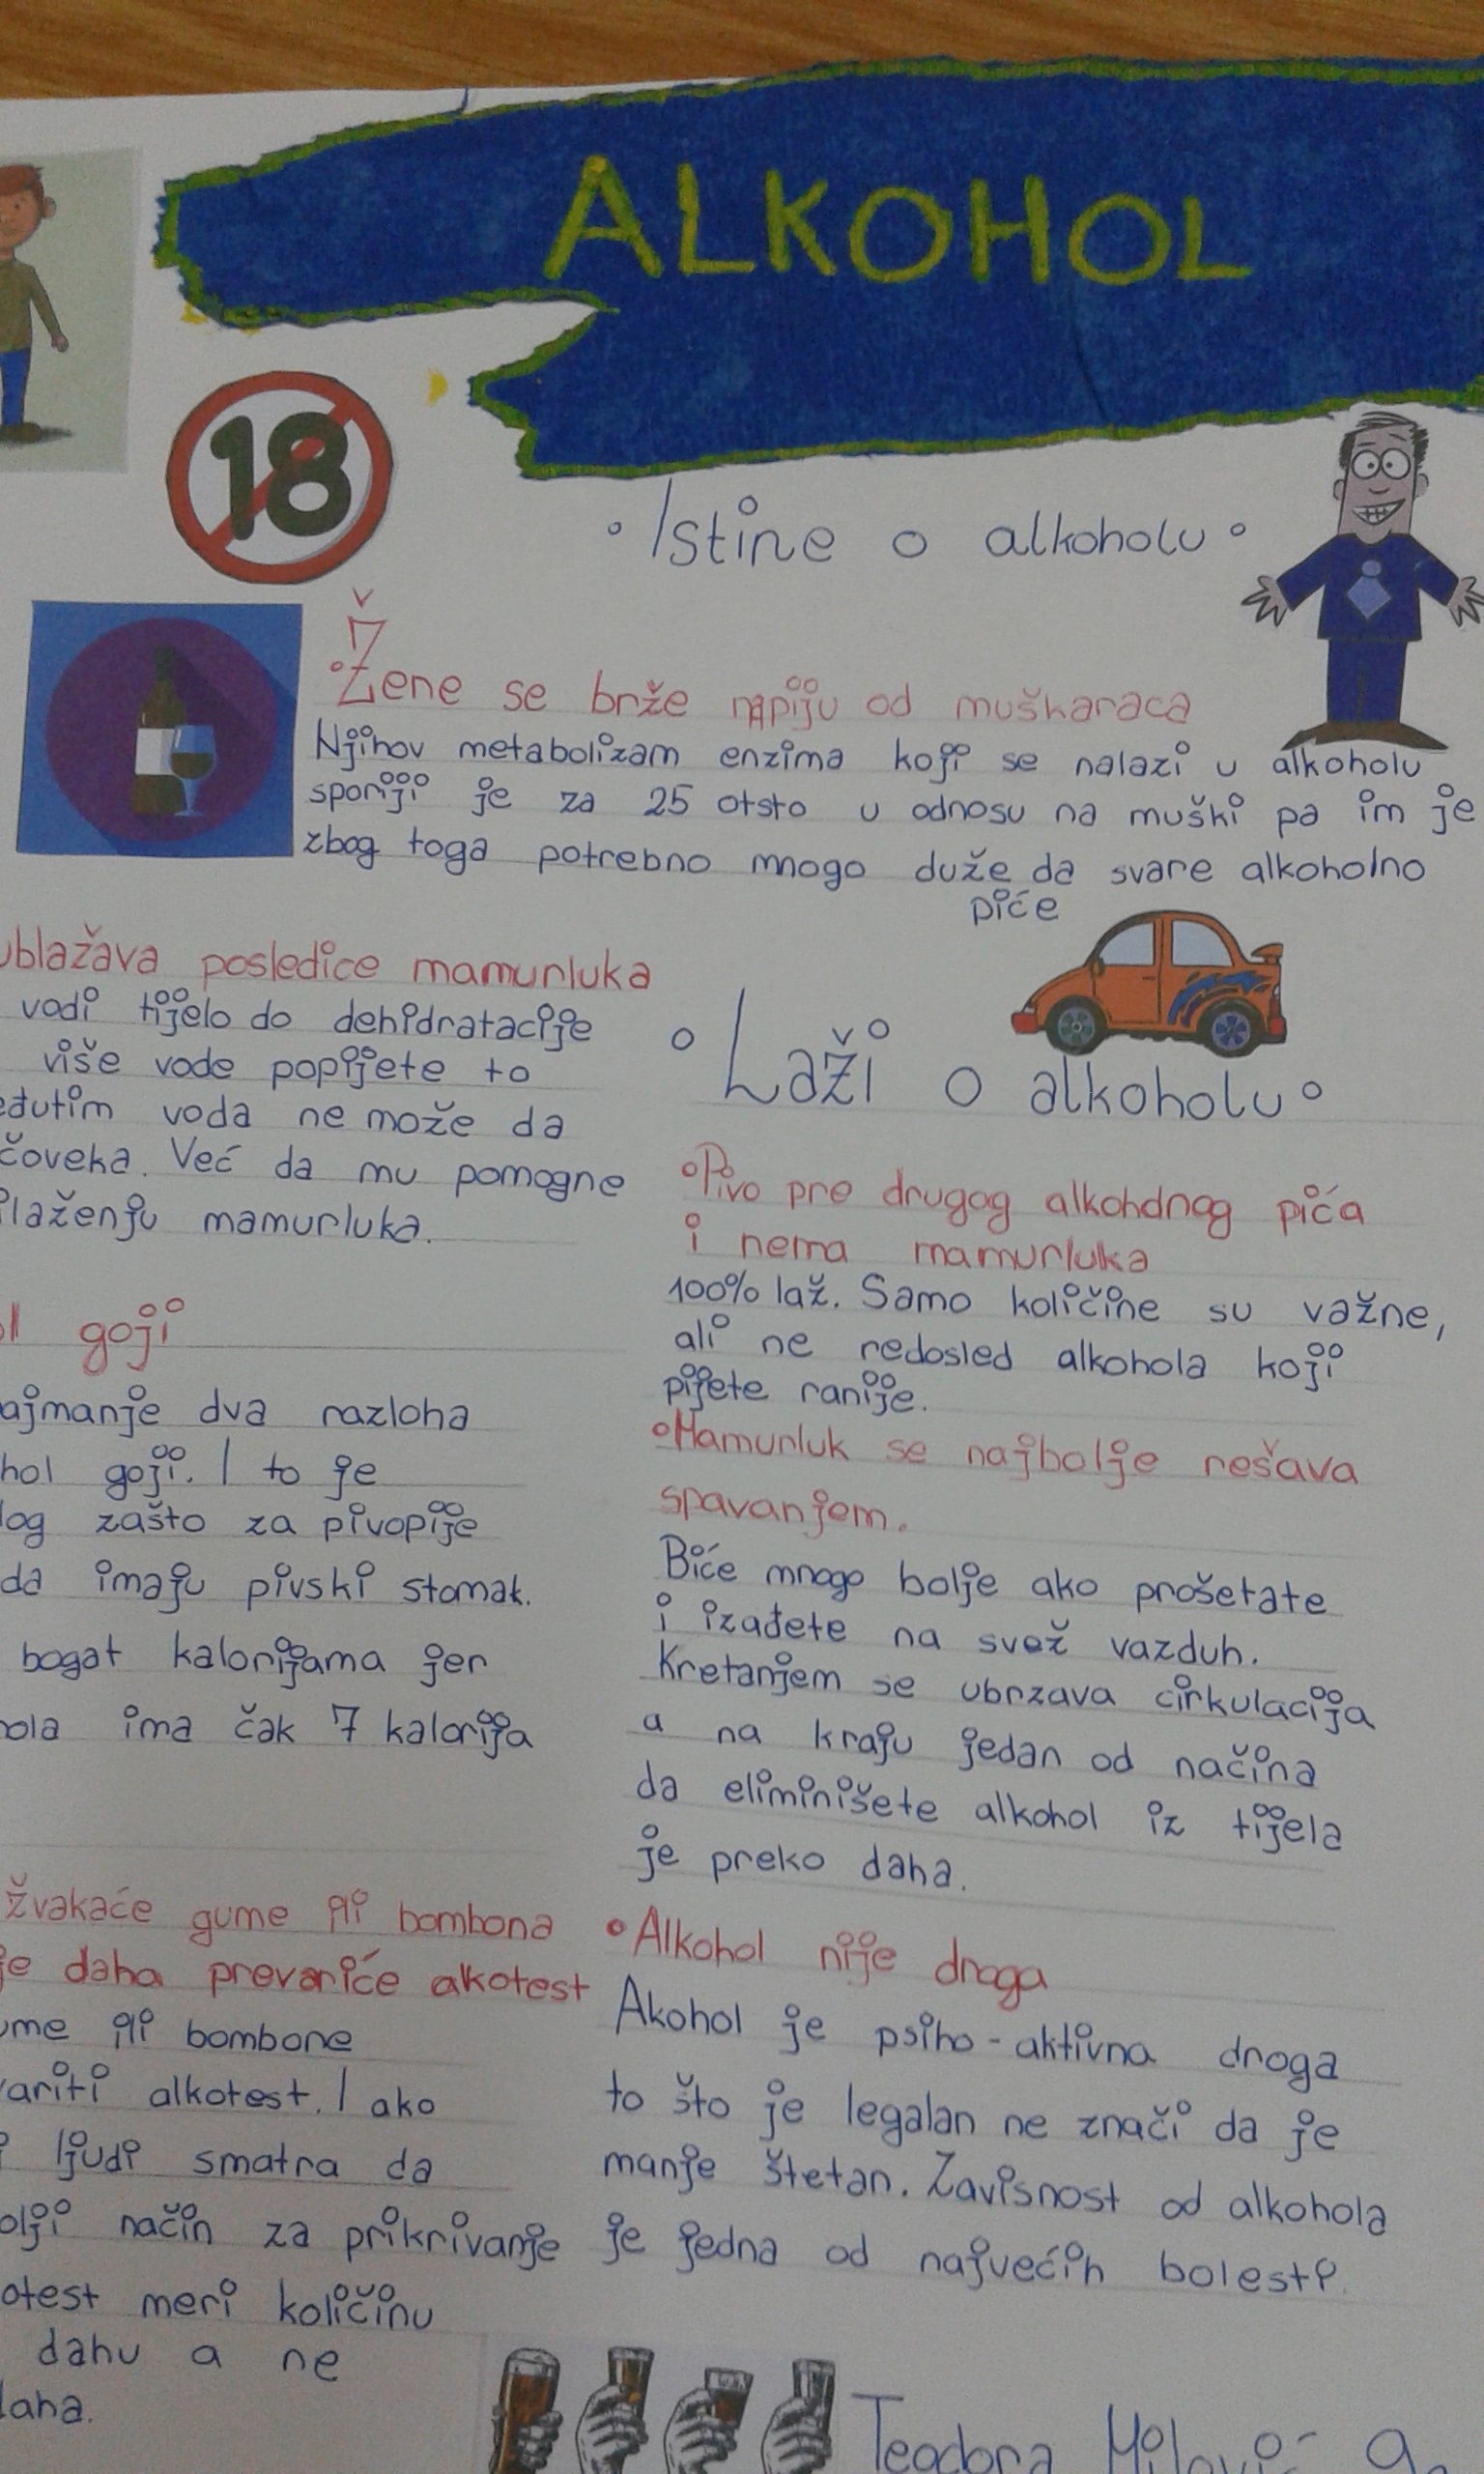 ALKOHOL
18
Istine o alkoholu
Žene se brže napiju od muškaraca
Njihov metabolizam enzima koji se nalazi u alkoholu
sporiji je za 25 otsto u odnosu na muški pa im je
zbog toga potrebno mnogo duže da svare alkoholno
piće
ublažava posledice mamurluka
vodi tijelo do dehidratacije
više vode popijete to
eđutim voda ne može da
čoveka. Već da mu pomogne
ilaženju mamurluka.
ol goji
ajmanje dva razloha
hol goji. I to je
log zašto za pivopije
da imaju pivski stomak.
bogat kalorijama jer
hola ima čak 7 kalorija
žvakaće gume ili bombona
je daha prevariće alkotest
ume ili bombone
variti alkotest. I ako
i ljudi smatra da
olji način za prikrivanje
otest meri količinu
dahu a ne
daha.
Laži o alkoholu
•Pivo pre drugog alkoholnog pića
i nema mamurluka
100% laž. Samo količine su važne,
ali ne redosled alkohola koji
pijete ranije.
•Mamurluk se najbolje rešava
spavanjem.
Biće mnogo bolje ako prošetate
i izađete na svež vazduh.
Kretanjem se ubrzava cirkulacija
a na kraju jedan od načina
da eliminišete alkohol iz tijela
je preko daha.
•Alkohol nije droga
Akohol je psiho-aktivna droga
to što je legalan ne znači da je
manje štetan. Zavisnost od alkohola
je jedna od najvećih bolesti.
Teodora